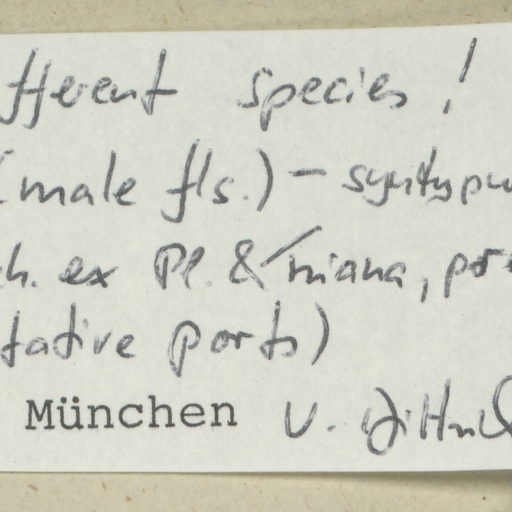 fferent species!
(male fls.) – syntypu
ch. ex Pl. & Triana, pro
tative parts)
München V. Bittrich